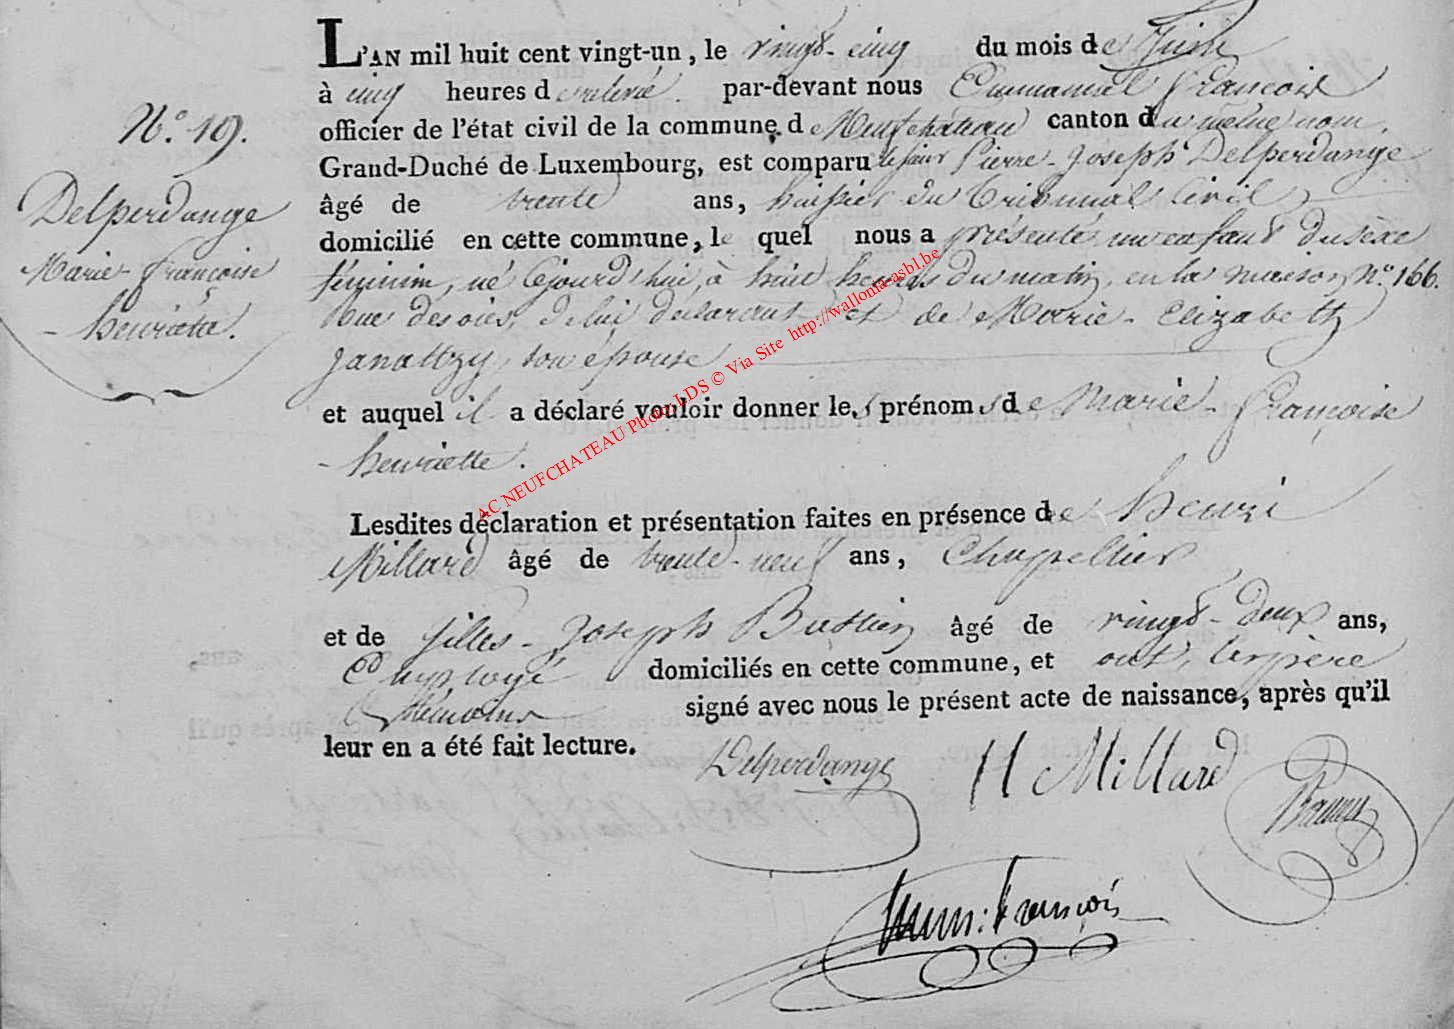 L'AN mil huit cent vingt-un, le vingt-cinq du mois de Juin
à cinq heures de relevé. par-devant nous Emmanuel François
officier de l'état civil de la commune de Neufchâteau canton du même nom,
Grand-Duché de Luxembourg, est comparu le sieur Pierre-Joseph Delperdange
âgé de trente ans, huissier du Tribunal Civil,
domicilié en cette commune, le quel nous a présenté un enfant du sexe
féminin, né Cejourd'hui, à huit heures du matin, en la maison N.° 166.
Rue des oies, de lui déclarant et de Marie-Elizabeth
Janattzy, son épouse
et auquel il a déclaré vouloir donner les prénoms de Marie-Françoise
-henriette.
Lesdites déclaration et présentation faites en présence de henri
Millard âgé de trente-neuf ans, Chapellier
et de Gilles-Joseph âgé de vingt-deux ans,
Employé domiciliés en cette commune, et ont, le père
& témoins signé avec nous le présent acte de naissance, après qu'il
leur en a été fait lecture.
N.° 19.
Delperdange
Marie-françoise
-henriette.
Delperdange H Millard
Emm: François
AC NEUFCHATEAU Photo LDS © Via Site http://wallonia-asbl.be